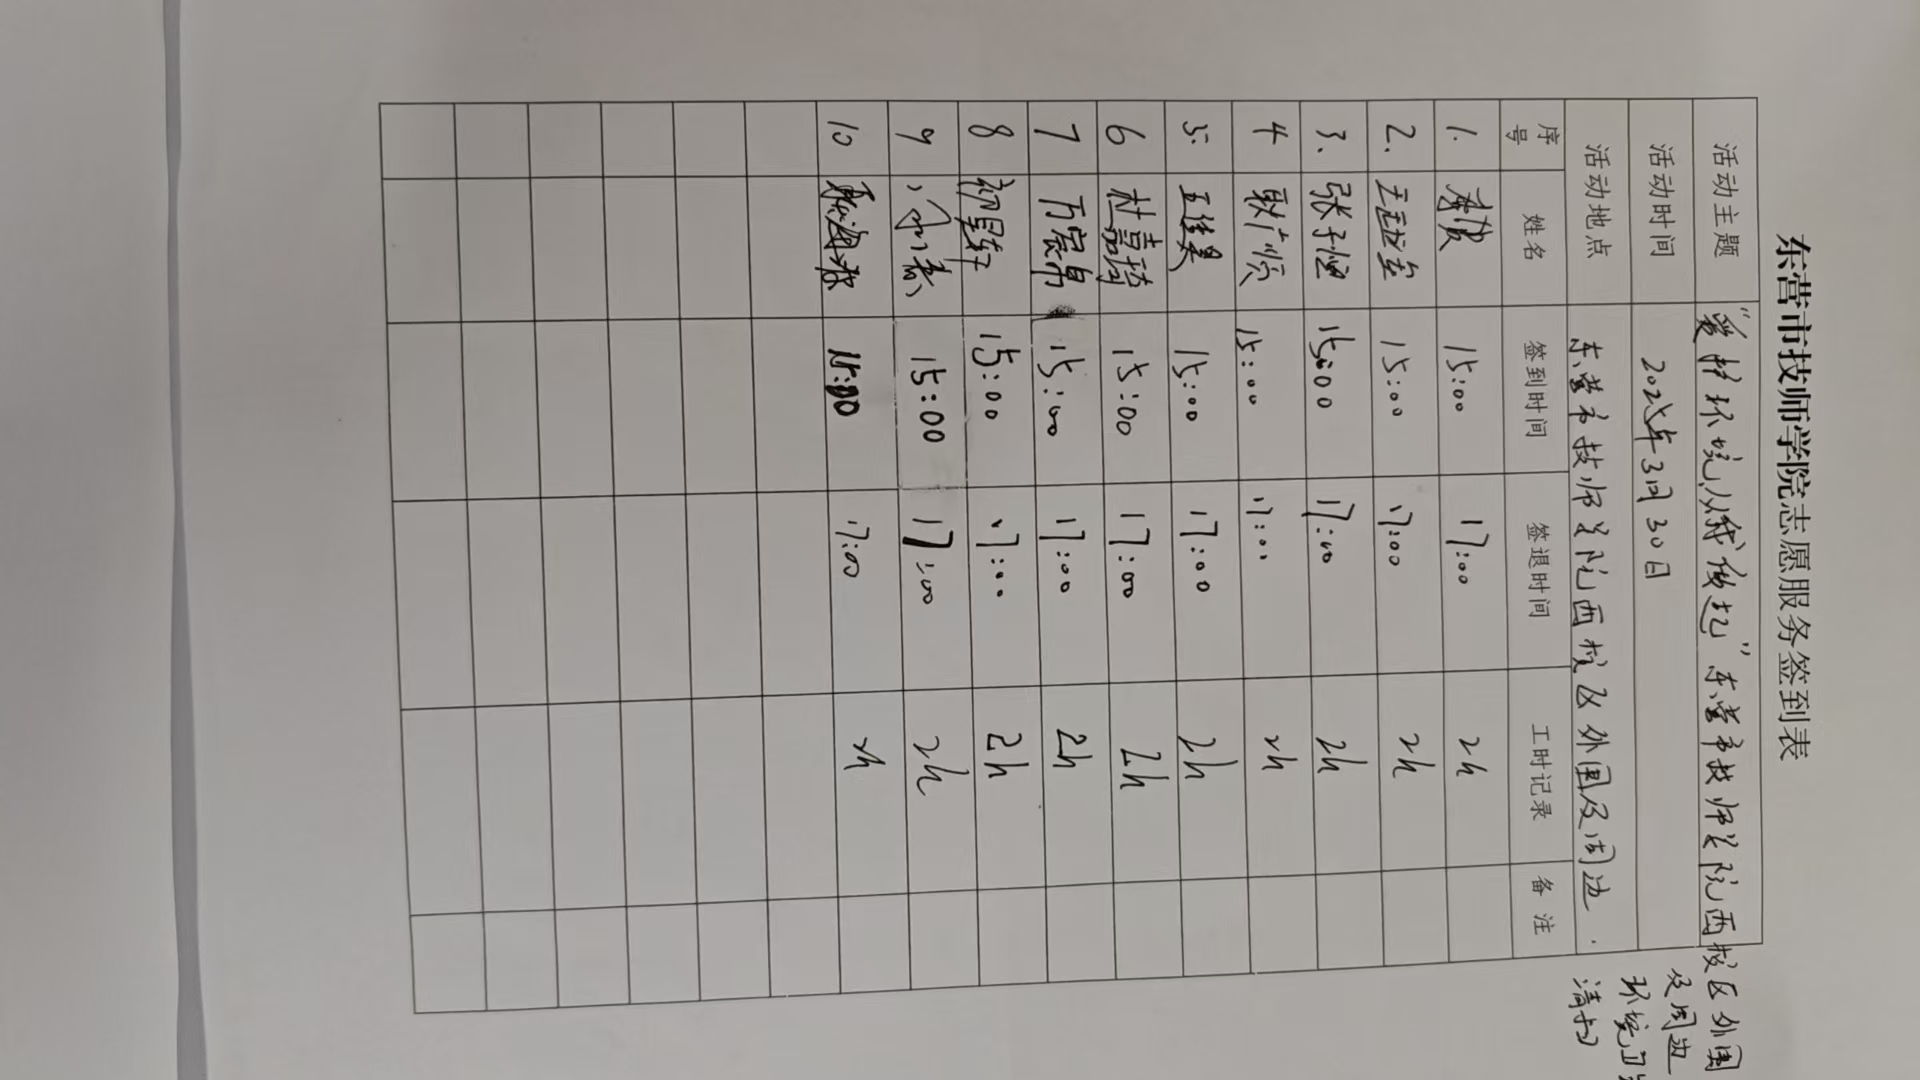 东营市技师学院志愿服务签到表
活动主题 “爱护环境,从我做起”东营市技师学院西校区外围
及周边
环境卫生
清扫
活动时间 2025年3月30日
活动地点 东营市技师学院西校区外围及周边.
序号 姓名 签到时间 签退时间 工时记录 备注
1. 15:00 17:00 2h
2. 15:00 17:00 2h
3. 张子恒 15:00 17:00 2h
4 耿广顺 15:00 17:00 2h
5. 王俊昊 15:00 17:00 2h
6 杜嘉琦 15:00 17:00 2h
7 万宸帛 15:00 17:00 2h
8 初星轩 15:00 17:00 2h
9 15:00 17:00 2h
10 15:00 17:00 2h